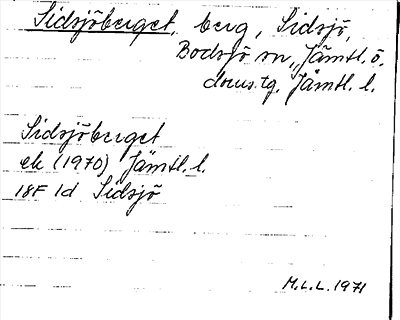 Sidsjöberget, berg, Sidsjö,
Bodsjö sn, Jämtl. ö.
doms.tg. Jämtl. l.
Sidsjöberget
ek (1970) Jämtl. l.
18F 1d Sidsjö
M.L.L. 1971